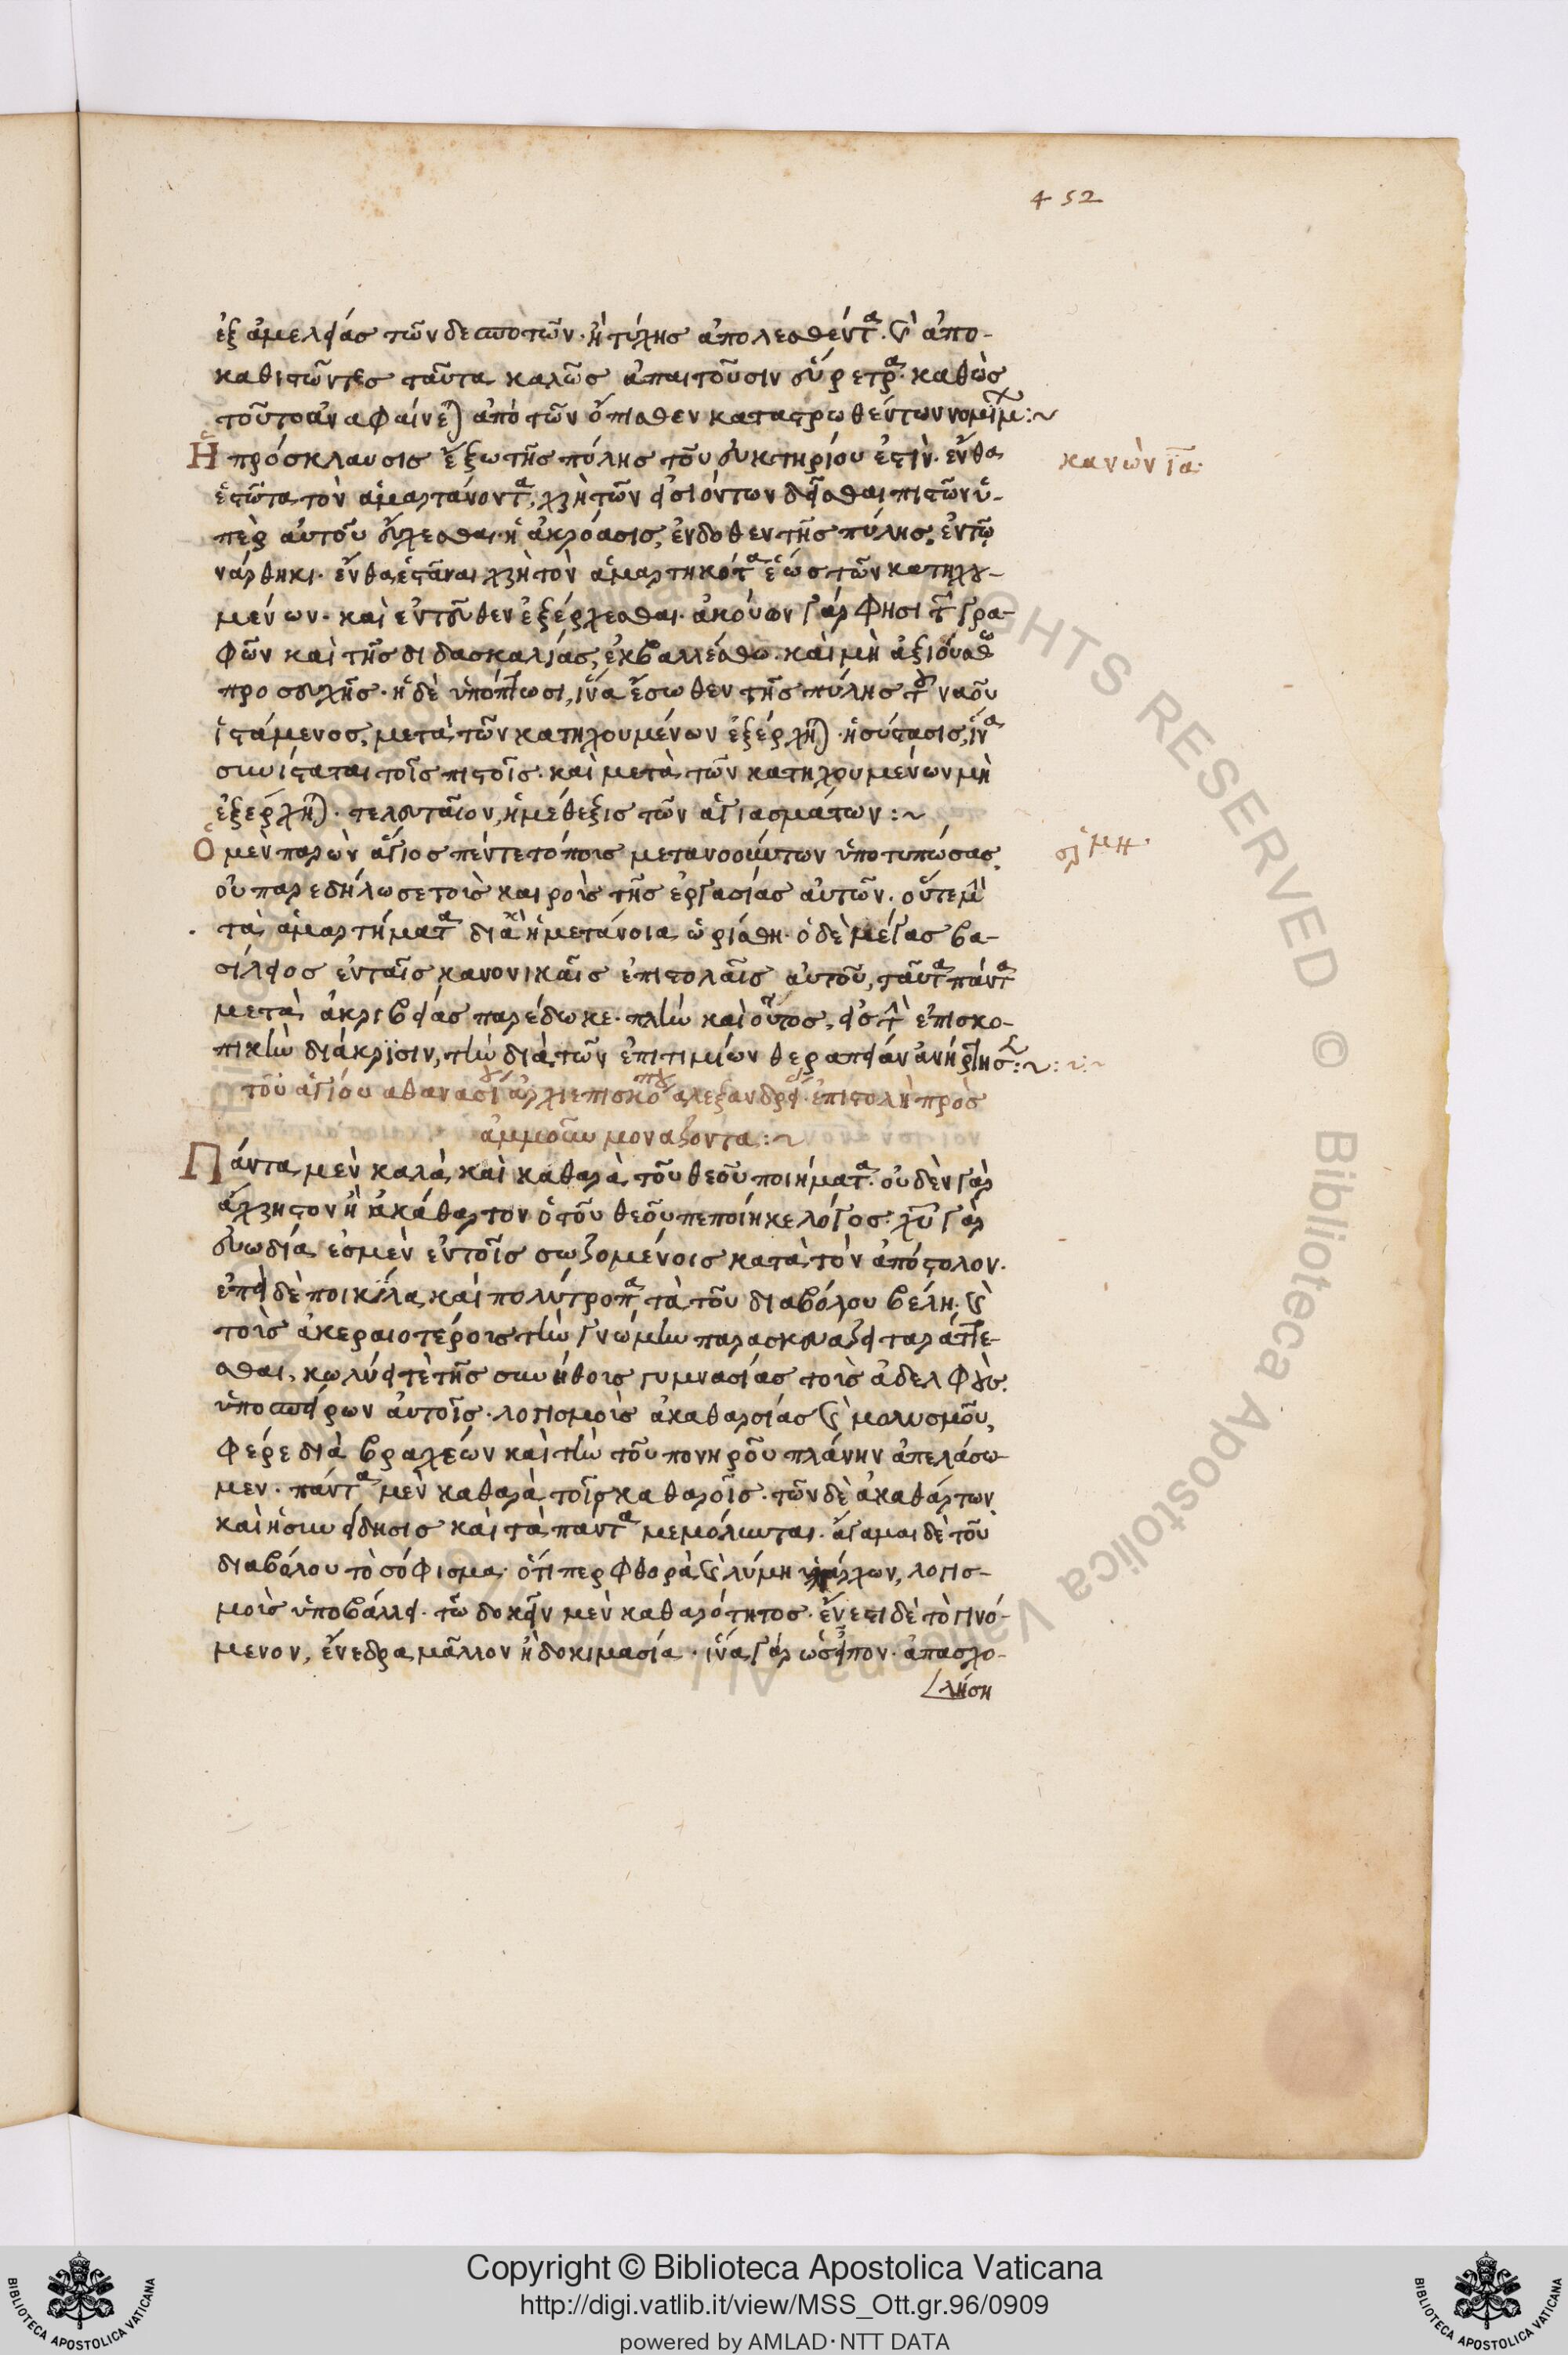 452
ἐξ ἀμελείας τῶν δεσποτῶν· ἢ τύχης ἀπολεσθέντα· καὶ ἀπο-
καθιστῶντες ταῦτα καλῶς ἀπαιτοῦσιν εὕρετρα· καθὼς
τοῦτο ἀναφαίνεται ἀπὸ τῶν ὄπισθεν καταστρωθέντων νομίμων:~
Ἡ πρόσκλαυσις ἔξω τῆς πύλης τοῦ εὐκτηρίου ἐστίν· ἔνθα
κανὼν ια·
ἑστῶτα τὸν ἁμαρτάνοντα, χρὴ τῶν εἰσιόντων δεῖσθαι πιστῶν ὑ-
πὲρ αὐτοῦ εὔχεσθαι· ἡ ἀκρόασις, ἔνδοθεν τῆς πύλης, ἐν τῷ
νάρθηκι· ἔνθα ἑστάναι χρὴ τὸν ἁμαρτηκότα ἕως τῶν κατηχου-
μένων· καὶ ἐντεῦθεν ἐξέρχεσθαι· ἀκούων γάρ φησι τῶν γρα-
φῶν καὶ τῆς διδασκαλίας, ἐκβαλλέσθω· καὶ μὴ ἀξιούσθω
προσευχῆς· ἡ δὲ ὑπόπτωσι, ἵνα ἔσωθεν τῆς πύλης τοῦ ναοῦ
ἱστάμενος, μετὰ τῶν κατηχουμένων ἐξέρχηται· ἡ σύστασις, ἵνα
συνίσταται τοῖς πιστοῖς· καὶ μετὰ τῶν κατηχουμένων μὴ
ἐξέρχηται· τελευταῖον, ἡ μέθεξις τῶν ἁγιασμάτων:~
Ὁ μὲν παρὼν ἅγιος πέντε τόπους μετανοούντων ὑποτυπώσας
οὐ παρεδήλωσε τοὺς καιροὺς τῆς ἐργασίας αὐτῶν· οὔτε μὴν
τὰ ἁμαρτήματα δι' ἃ ἡ μετάνοια ὡρίσθη· ὁ δὲ μέγας βα-
σίλειος ἐν ταῖς κανονικαῖς ἐπιστολαῖς αὐτοῦ, ταῦτα πάντα
μετὰ ἀκριβείας παρέδωκε· πλὴν καὶ οὗτος, εἰς τὴν ἐπισκο-
πικὴν διάκρισιν, τὴν διὰ τῶν ἐπιτιμίων θεραπείαν ἀνήρτησεν:~
τοῦ ἁγίου ἀθανασίου ἀρχιεπισκόπου ἀλεξανδρείας ἐπιστολὴ πρὸς
ἀμμοῦν μονάζοντα:~
Πάντα μὲν καλὰ καὶ καθαρὰ τοῦ θεοῦ ποιήματα· οὐδὲν γὰρ
ἄχρηστον ἢ ἀκάθαρτον ὁ τοῦ θεοῦ πεποίηκε λόγος· χῦ γὰρ
εὐωδία ἐσμὲν ἐν τοῖς σωζομένοις κατὰ τὸν ἀπόστολον·
ἐπεὶ δὲ ποικίλα καὶ πολύτροπα τὰ τοῦ διαβόλου βέλη· καὶ
τοὺς ἀκεραιοτέρους τὴν γνώμην παρασκευάζει ταράττε-
σθαι, κωλύει τὲ τῆς συνήθους γυμνασίας τοὺς ἀδελφοὺς
ὑποσπείρων αὐτοῖς· λογισμοὺς ἀκαθαρσίας καὶ μολυσμοῦ,
φέρε διὰ βραχέων καὶ τὴν τοῦ πονηροῦ πλάνην ἀπελάσω-
μεν· πάντα μὲν καθαρὰ τοῖς καθαροῖς· τῶν δὲ ἀκαθάρτων
καὶ ἡ συνείδησις καὶ τὰ πάντα μεμόλυνται· ἄγαμαι δὲ τοῦ
διαβόλου τὸ σόφισμα· ὅτι περ φθορὰ καὶ λύμη ὑπάρχων, λογισ-
μοὺς ὑποβάλλει· τῷ δοκεῖν μὲν καθαρότητος· ἔνεστι δὲ τὸ γινό-
μενον, ἔνεδρα μᾶλλον ἢ δοκιμασία· ἵνα γὰρ ὡς εἶπον· ἀπασχο-
λήση
Copyright © Biblioteca Apostolica Vaticana
http://digi.vatlib.it/view/MSS_Ott.gr.96/0909
powered by AMLAD·NTT DATA